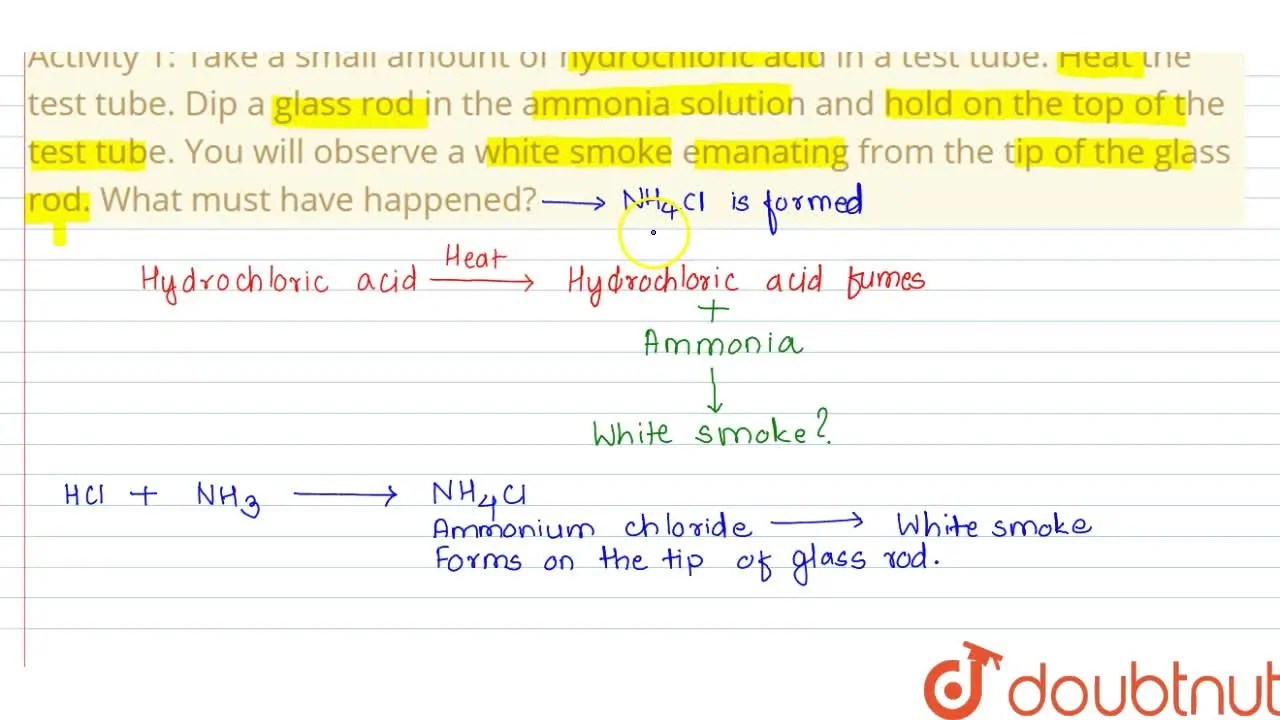 Activity 1: Take a small amount of hydrochloric acid in a test tube. Heat the
test tube. Dip a glass rod in the ammonia solution and hold on the top of the
test tube. You will observe a white smoke emanating from the tip of the glass
rod. What must have happened? → NH4Cl is formed
Heat
Hydrochloric acid → Hydrochloric acid fumes
+
Ammonia
↓
White smoke?
HCl + NH3 → NH4Cl
Ammonium chloride → White smoke
Forms on the tip of glass rod.
doubtnut